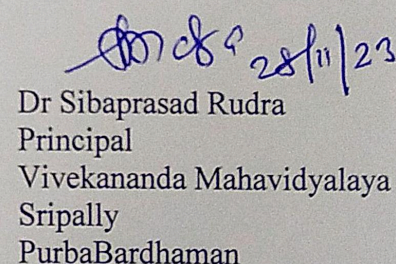 28/11/23
Dr Sibaprasad Rudra
Principal
Vivekananda Mahavidyalaya
Sripally
PurbaBardhaman